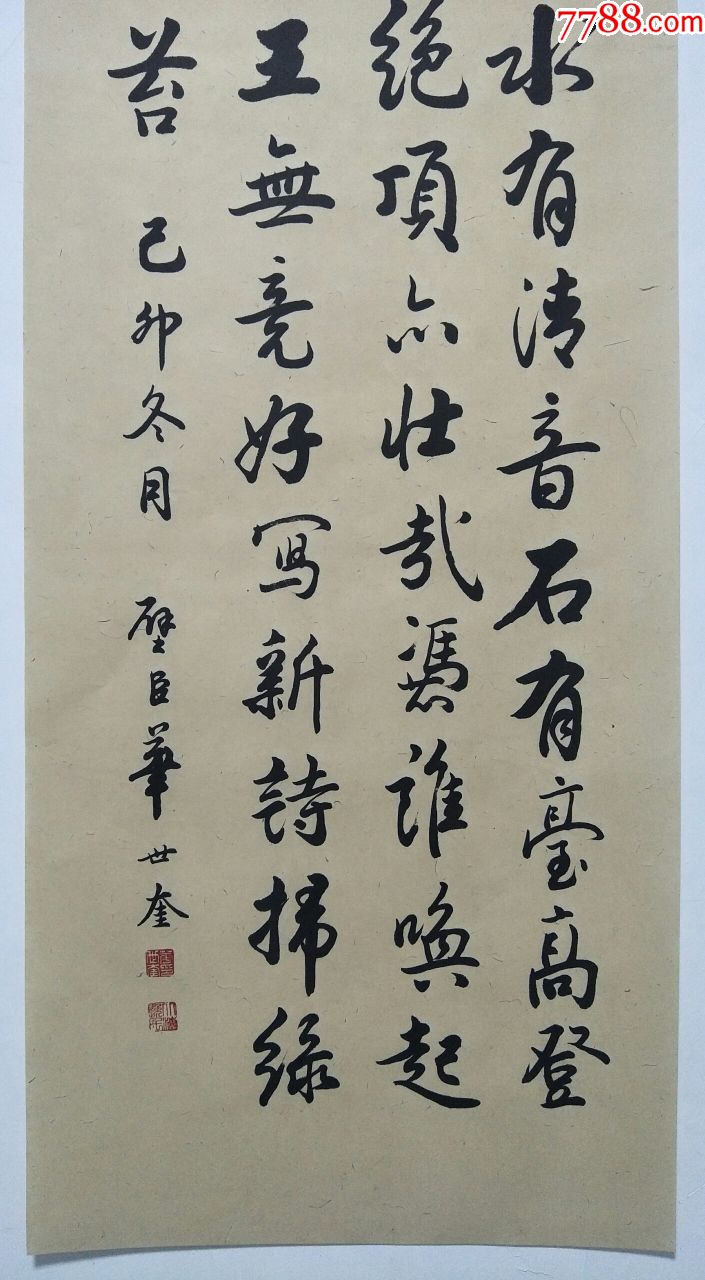 7788.com
水有清音石有臺高登
絕頂亦壯哉憑誰喚起
王無竞好寫新詩掃綠
苔 己卯冬月 壁臣華世奎